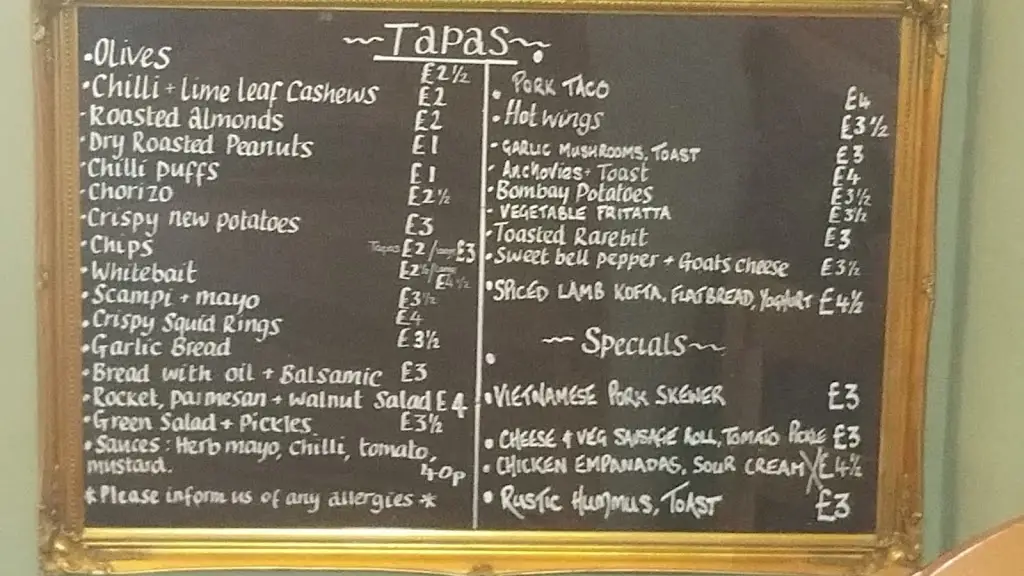 ~Tapas~
•Olives £2½
•Chilli + Lime leaf Cashews £2
•Roasted almonds £2
•Dry Roasted Peanuts £1
•Chilli puffs £1
•Chorizo £2½
•Crispy new potatoes £3
•Chips Tapas £2/£3
•Whitebait £2½/£4½
•Scampi + mayo £3½
•Crispy Squid Rings £4
•Garlic Bread £3½
•Bread with oil + Balsamic £3
•Rocket, parmesan + walnut Salad £4
•Green Salad + Pickles £3½
•Sauces: Herb mayo, chilli, tomato,
mustard. 40p
*Please inform us of any allergies*
•PORK TACO £4
•Hot wings £3½
•GARLIC MUSHROOMS, TOAST £3
•Anchovies + Toast £4
•Bombay Potatoes £3½
•VEGETABLE FRITATTA £3½
•Toasted Rarebit £3
•Sweet bell pepper + Goats cheese £3½
•SPICED LAMB KOFTA, FLATBREAD, Yoghurt £4½
~Specials~
•VIETNAMESE PORK SKEWER £3
•CHEESE & VEG SAUSAGE ROLL, TOMATO PICKLE £3
•CHICKEN EMPANADAS, SOUR CREAM £4½
•RUSTIC HUMMUS, TOAST £3